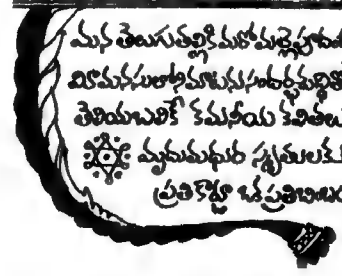 మన తెలుగుతల్లికి మరో మల్లెపూదండ
మీ మనసులోని మాటను సందర్భశుద్ధితో
తెలియబలికే కమనీయ కవితలు
మృదుమధుర స్మృతులకు
ప్రతి కార్డూ ఒక ప్రతిబింబం